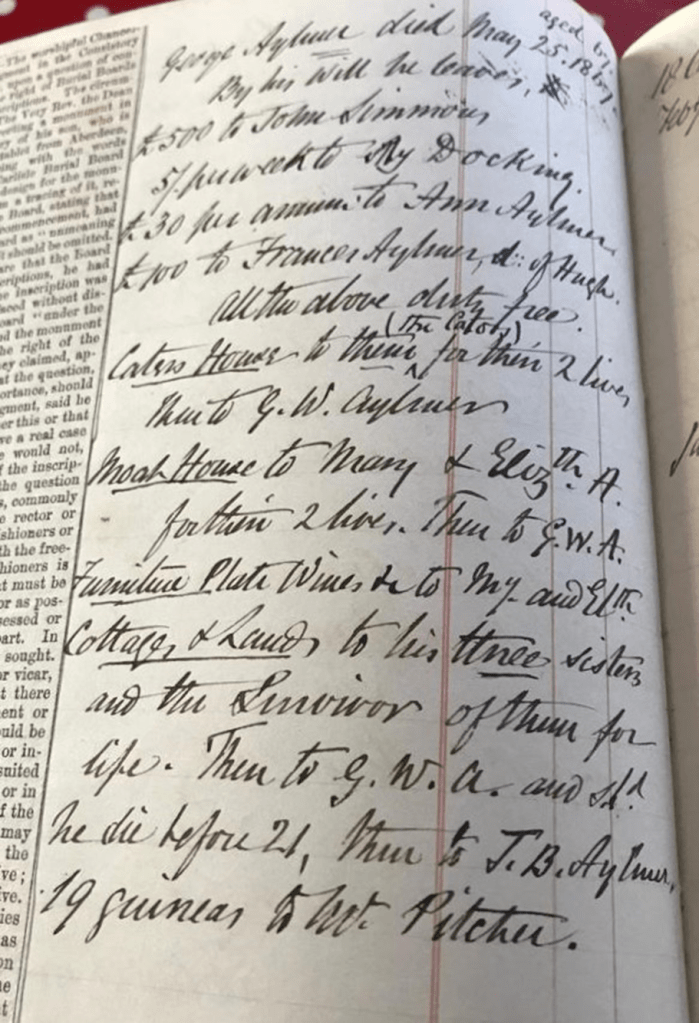 The worshipful Chancer-
ment in the Consistory
upon a question of con-
right of Burial Boards
riptions. The circum-
Very Rev. the Dean
erecting a monument in
ry of his son, who is
from Aberdeen,
ing with the words
Carlisle Burial Board
design for the monu-
n a tracing of it, re-
Board, stating that
commencement, had
ard as "unmeaning
should be omitted.
are that the Board
criptions, he had
he inscription was
aced without dis-
oard "under the
d the monument
he right of the
ey claimed, ap-
at the question,
ortance, should
gment, said he
er this or that
ve a real case
e would not,
f the inscrip-
the question
s, commonly
e rector or
shioners or
th the free-
hioners is
t must be
or as pos-
sessed or
part. In
sought.
or vicar,
t there
ent or
ould be
or in-
snited
or in
f the
may
the
ve;
ve.
ies
as
on
ne
t
George Aylmer died May 25. 18
aged
By his Will he leaves,
£500 to John Simmons
5/ per week to My Docking.
£30 per annum to Ann Aylmer
£100 to Frances Aylmer, d: of Hugh.
All the above duty free.
(the Cators)
Cators House to them for their 2 lives
Then to G. W. Aylmer
Moah House to Mary & Elizth A.
for their 2 lives. Then to G. W. A.
Furniture Plate Wines &c to My and Elth
Cottages & Lands to his three sisters
and the Survivor of them for
life. Then to G. W. A. and shd
he die before 21, then to J. B. Aylmer,
19 guineas to Pitcher.